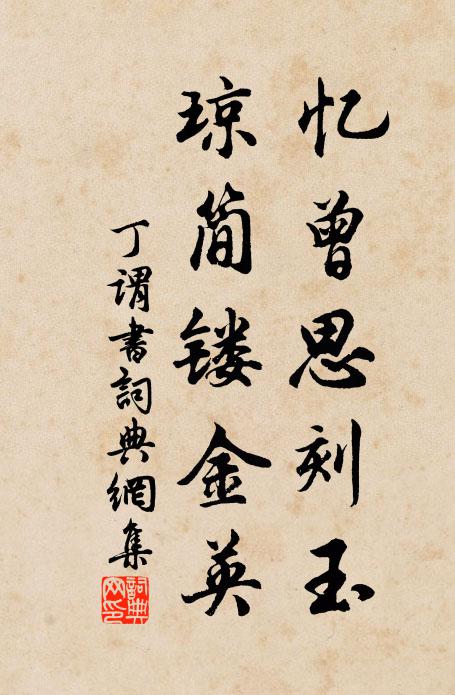 忆曾思刻玉
琼简镂金英
丁谓书詞典網集
詞典网印